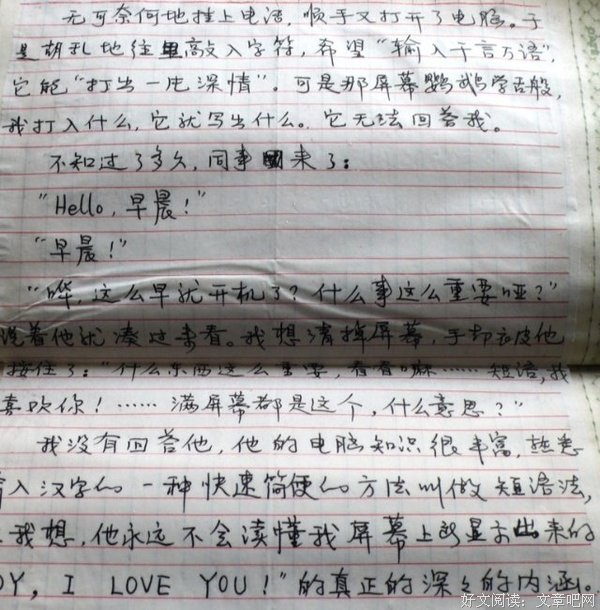 无可奈何地挂上电话，顺手又打开了电脑。于
是胡乱地往里敲入字符，希望“输入千言万语”，
它能“打出一片深情”。可是那屏幕鹦鹉学舌般，
我打入什么，它就写出什么。它无法回答我。
不知过了多久，同事回来了：
“Hello，早晨！”
“早晨！”
“哗，这么早就开机了？什么事这么重要哑？”
说着他就凑过来看。我想清掉屏幕，手却被他
按住了：“什么东西这么重要，看看嘛……短语，我
喜欢你！……满屏幕都是这个，什么意思？”
我没有回答他，他的电脑知识很丰富，熟悉
输入汉字的一种快速简便的方法叫做短语法，
我想，他永远不会读懂我屏幕上所显示出来的
OY，I LOVE YOU！”的真正的深深的内涵。
好文阅读：文章吧网